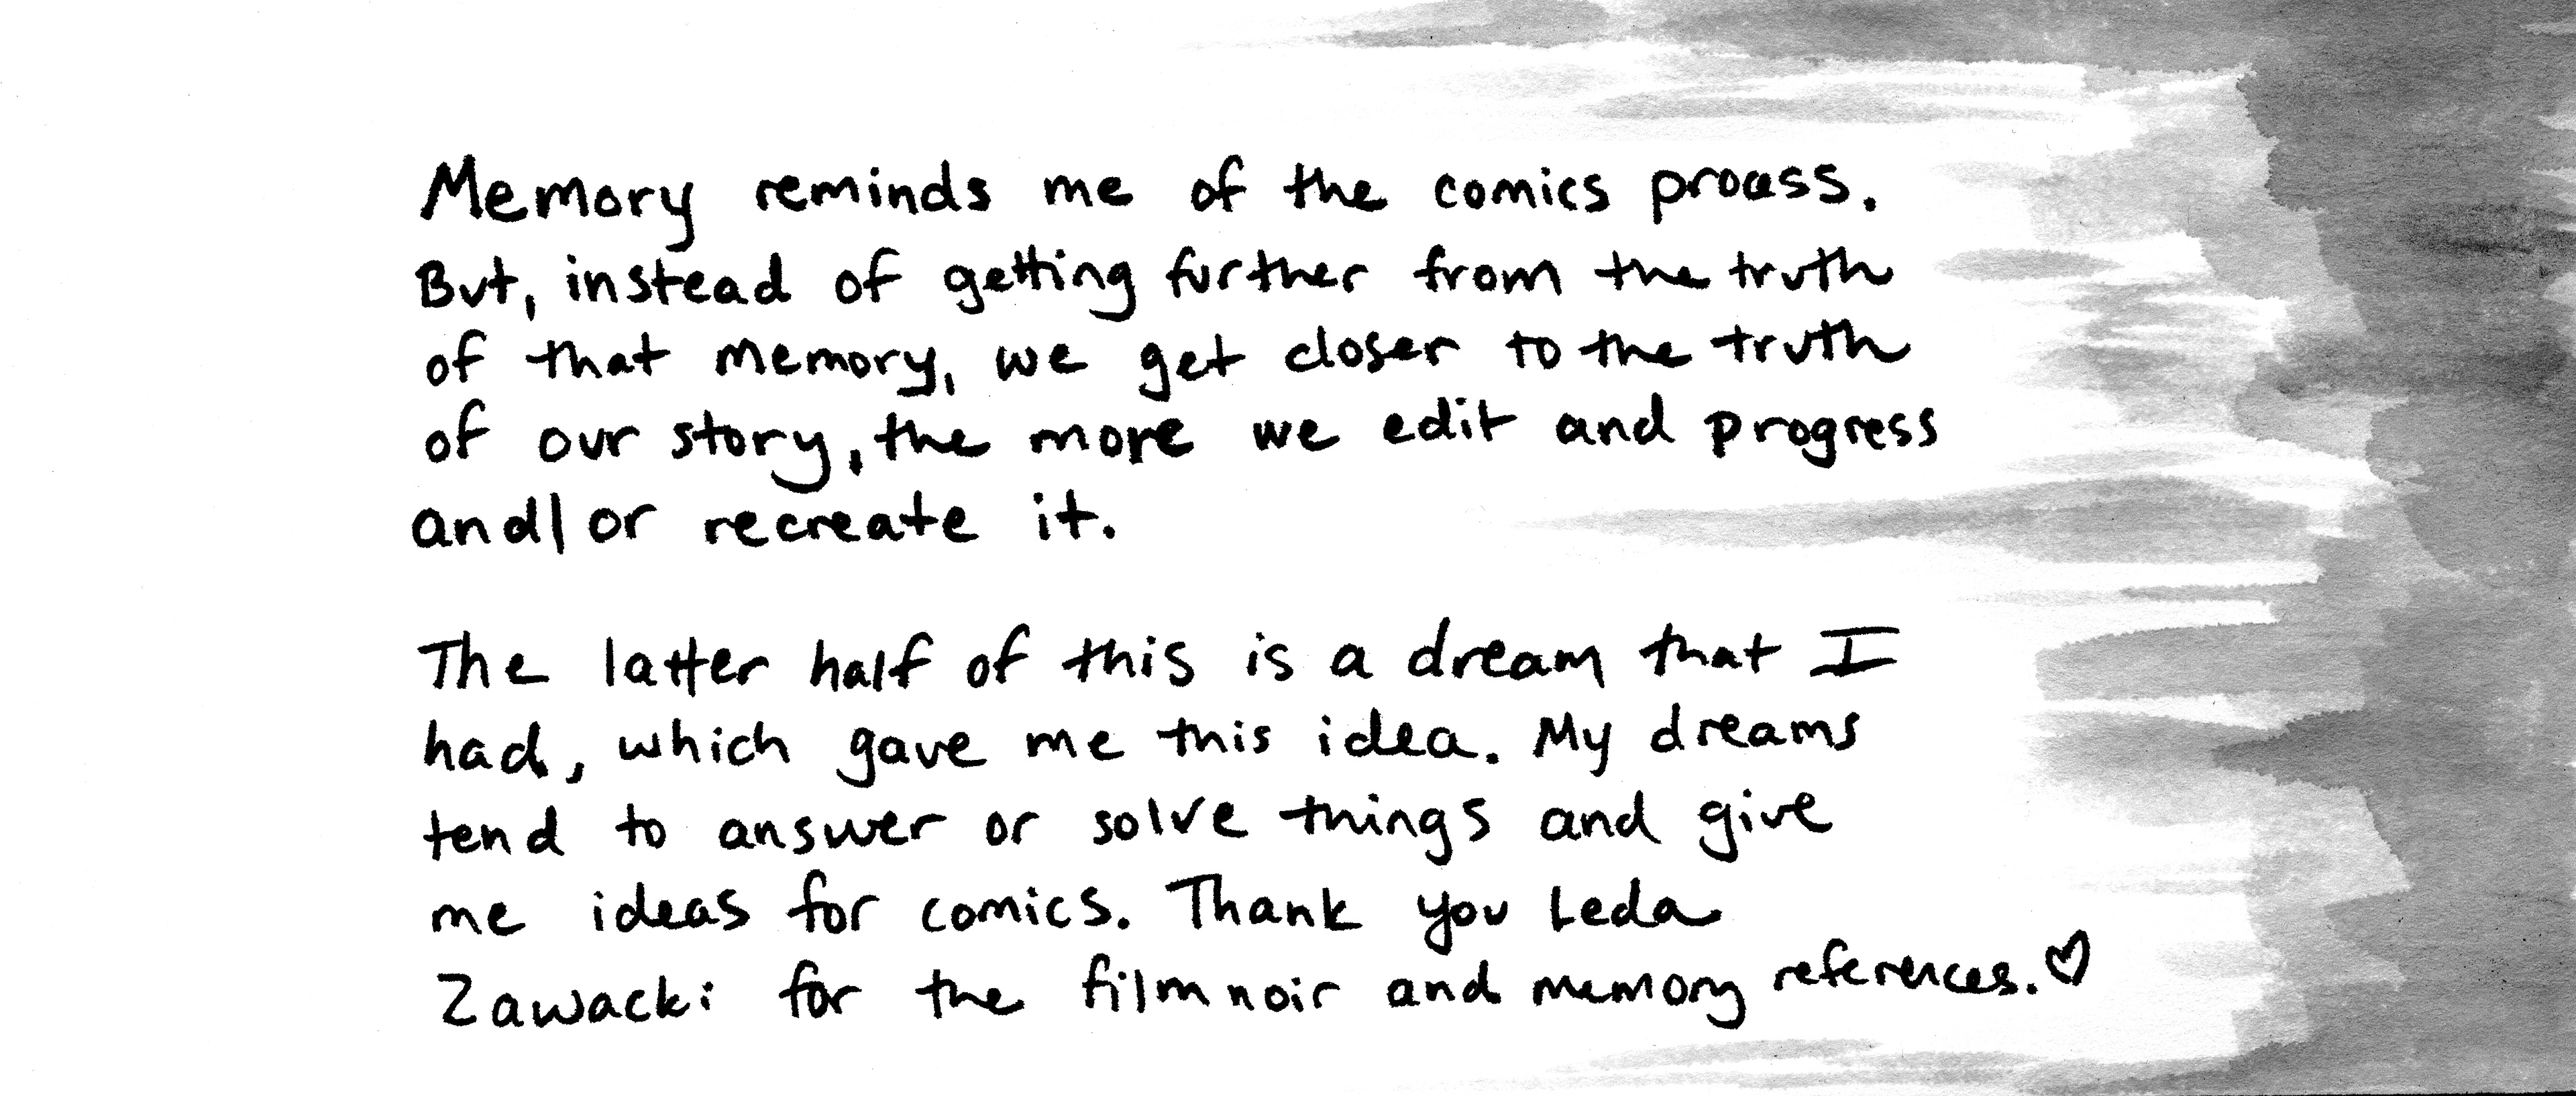 Memory reminds me of the comics process.
But, instead of getting further from the truth
of that memory, we get closer to the truth
of our story, the more we edit and progress
and/or recreate it.
The latter half of this is a dream that I
had, which gave me this idea. My dreams
tend to answer or solve things and give
me ideas for comics. Thank you Leda
Zawacki for the film noir and memory references. ♡